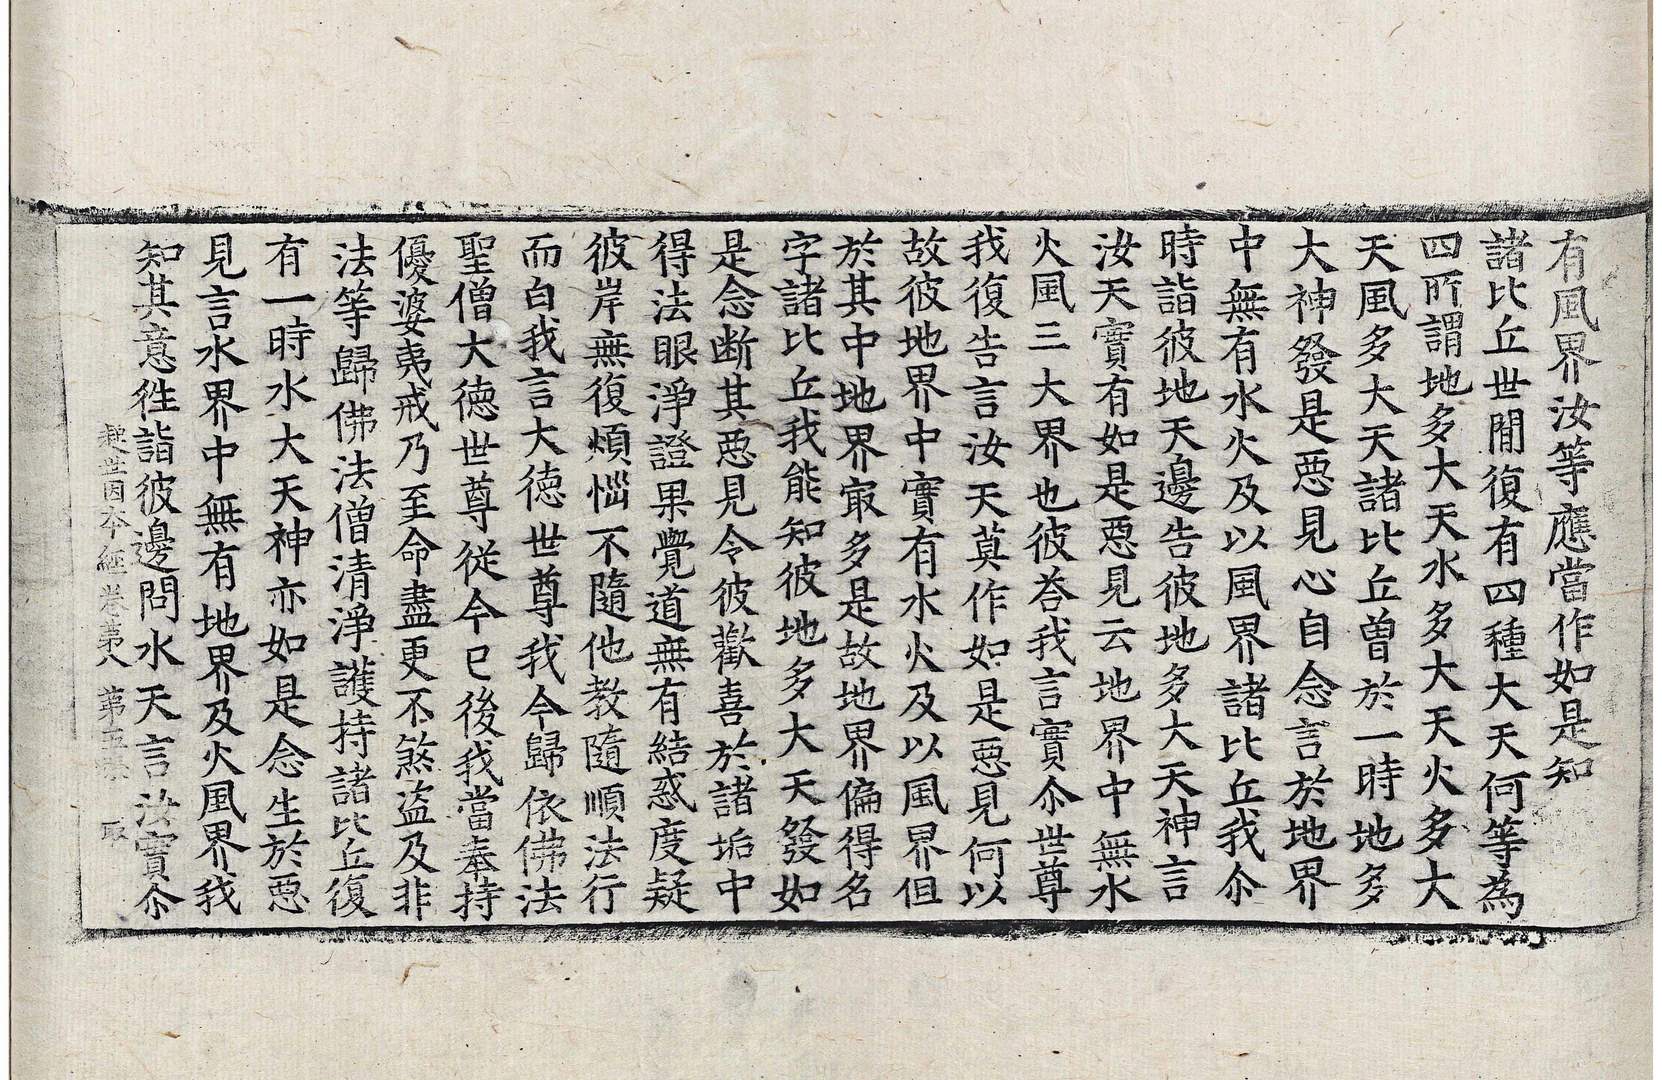 有風界汝等應當作如是知
諸比丘世閒復有四種大天何等為
四所謂地多大天水多大天火多大
天風多大天諸比丘曽於一時地多
大神發是惡見心自念言於地界
中無有水火及以風界諸比丘我尒
時詣彼地天邊告彼地多大天神言
汝天實有如是惡見云地界中無水
火風三大界也彼荅我言實尒世尊
我復告言汝天莫作如是惡見何以
故彼地界中實有水火及以風界但
於其中地界㝡多是故地界偏得名
字諸比丘我能知彼地多大天發如
是念断其惡見令彼歡喜於諸垢中
得法眼淨證果覺道無有結惑度疑
彼岸無復煩惱不隨他教隨順法行
而白我言大德世尊我今歸依佛法
聖僧大德世尊從今已後我當奉持
優婆夷戒乃至命盡更不煞盜及非
法等歸佛法僧清淨護持諸比丘復
有一時水大天神亦如是念生於惡
見言水界中無有地界及火風界我
知其意徃詣彼邊問水天言汝實尒
起世因本經卷第八 第五張 取